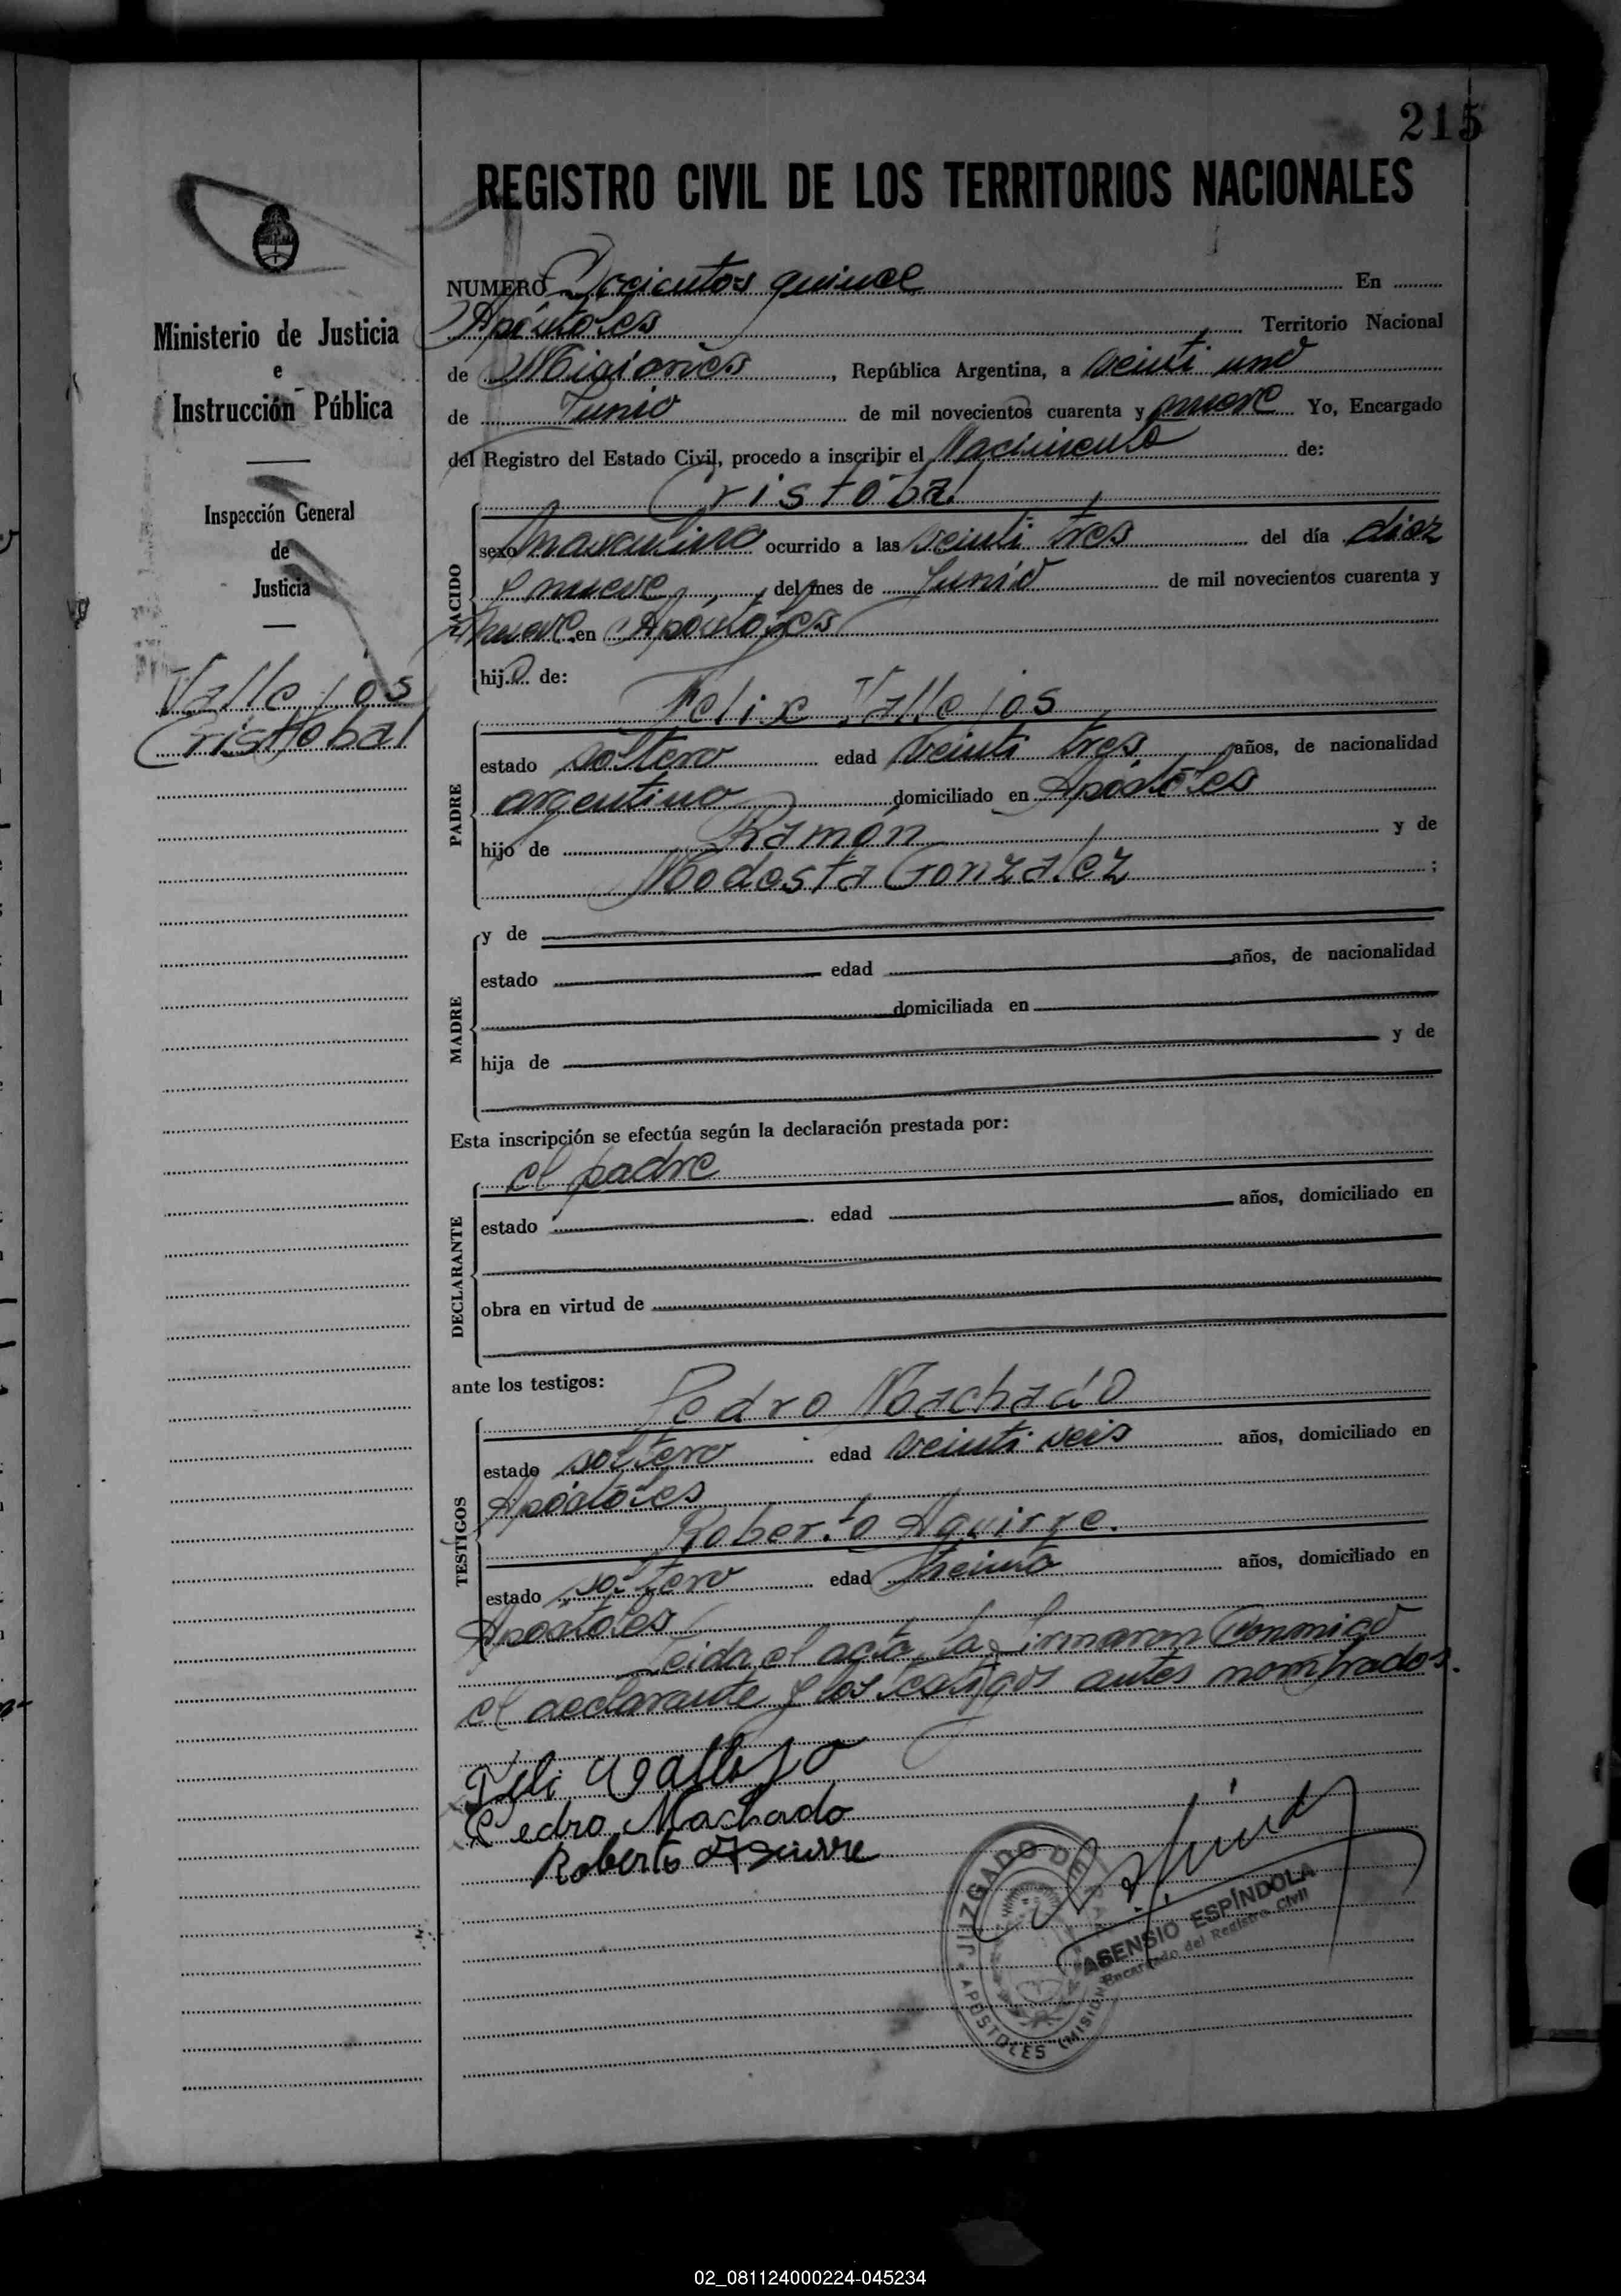 215
REGISTRO CIVIL DE LOS TERRITORIOS NACIONALES
Ministerio de Justicia
e
Instrucción Pública
Inspección General
de
Justicia
Vallejos
Cristobal
NUMERO Docientos quince En
Apóstoles Territorio Nacional
de Misiones, República Argentina, a veinti uno
de Junio de mil novecientos cuarenta y nueve Yo, Encargado
del Registro del Estado Civil, procedo a inscribir el Nacimiento de:
Cristóbal
NACIDO
sexo masculino ocurrido a las veinti tres del día diez
y nueve, del mes de Junio de mil novecientos cuarenta y
nueve en Apóstoles
hijo de:
Felix Vallejos
PADRE
estado soltero edad veinti tres años, de nacionalidad
argentino domiciliado en Apóstoles
hijo de Ramón y de
Modesta Gonzalez ;
MADRE
y de
estado edad años, de nacionalidad
domiciliada en
hija de y de
Esta inscripción se efectúa según la declaración prestada por:
el padre
DECLARANTE
estado edad años, domiciliado en
obra en virtud de
ante los testigos:
Pedro Machado
TESTIGOS
estado soltero edad veinti seis años, domiciliado en
Apóstoles
Roberto Aguirre.
estado soltero edad treinta años, domiciliado en
Apóstoles
Leida el acta la firmaron conmigo
el declarante y los testigos antes nombrados.
Feli Vallejo
Pedro Machado
Roberto Aguirre
JUZGADO DE PAZ
APOSTOLES (MISIONES)
ASENSIO ESPÍNDOLA
Encargado del Registro Civil
02_081124000224-045234